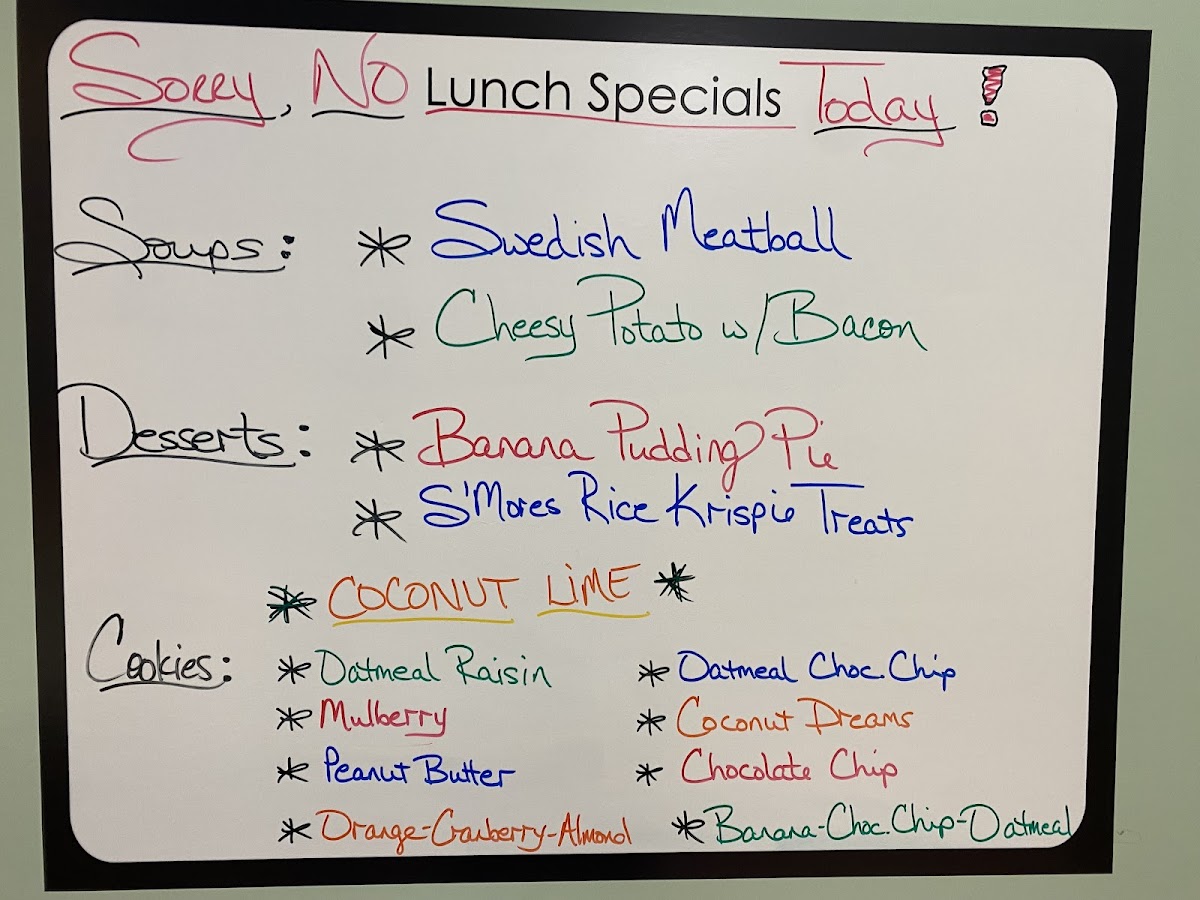 Sorry, No Lunch Specials Today!
Soups: * Swedish Meatball
* Cheesy Potato w/Bacon
Desserts: * Banana Pudding Pie
* S'Mores Rice Krispie Treats
* COCONUT LiME *
Cookies: * Oatmeal Raisin * Oatmeal Choc. Chip
* Mulberry * Coconut Dreams
* Peanut Butter * Chocolate Chip
* Orange-Cranberry-Almond * Banana-Choc. Chip-Oatmeal